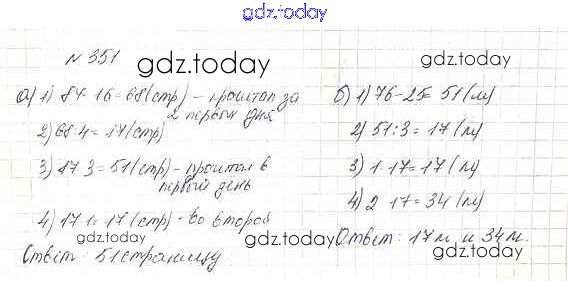 gdz.today
№ 351
gdz.today
gdz.today
а) 1) 84-16=68(стр) - прочитал за
2 первых дня
2) 68:4=17(стр)
3) 17·3=51(стр) - прочитал в
первый день
4) 17·1=17(стр) - во второй
gdz.today
Ответ: 51 страницу
б) 1) 76-25=51(м)
2) 51:3=17(м)
3) 1·17=17(м)
4) 2·17=34(м)
gdz.today
Ответ: 17м и 34м.
gdz.today
gdz.today